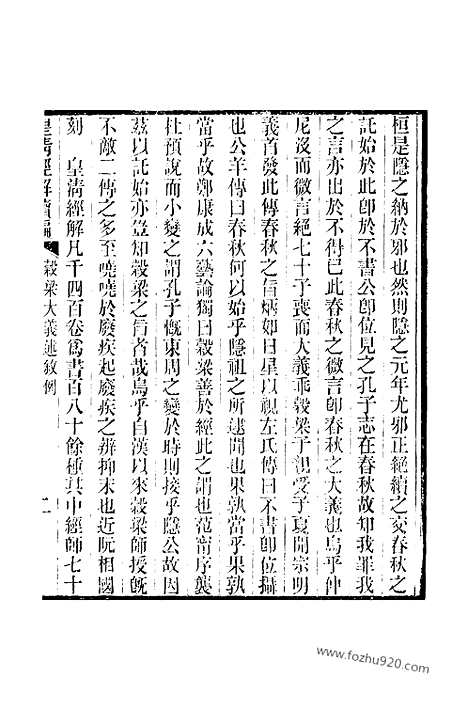 桓是隱之納於邪也然則隱之元年尤邪正絕續之交春秋之
託始於此卽於不書公卽位見之孔子志在春秋故知我罪我
之言亦出於不得已此春秋之微言卽春秋之大義也烏乎仲
尼沒而微言絕七十子喪而大義乖穀梁子親受子夏開宗明
義首發此傳春秋之旨炳如日星以視左氏傳曰不書卽位攝
也公羊傳曰春秋何以始乎隱祖之所逮聞也果孰當乎果孰
當乎故鄭康成六藝論獨曰穀梁善於經此之謂也范甯序襲
杜預說而小變之謂孔子慨東周之變於時則接乎隱公故因
茲以託始亦豈知穀梁之旨者哉烏乎自漢以來穀梁師授旣
不敵二傳之多至嘵嘵於廢疾起廢疾之辨抑末也近阮相國
刻 皇清經解凡千四百卷爲書百八十餘種其中經師七十
皇清經解續編 穀梁大義述敘例 二
www.fozhu920.com